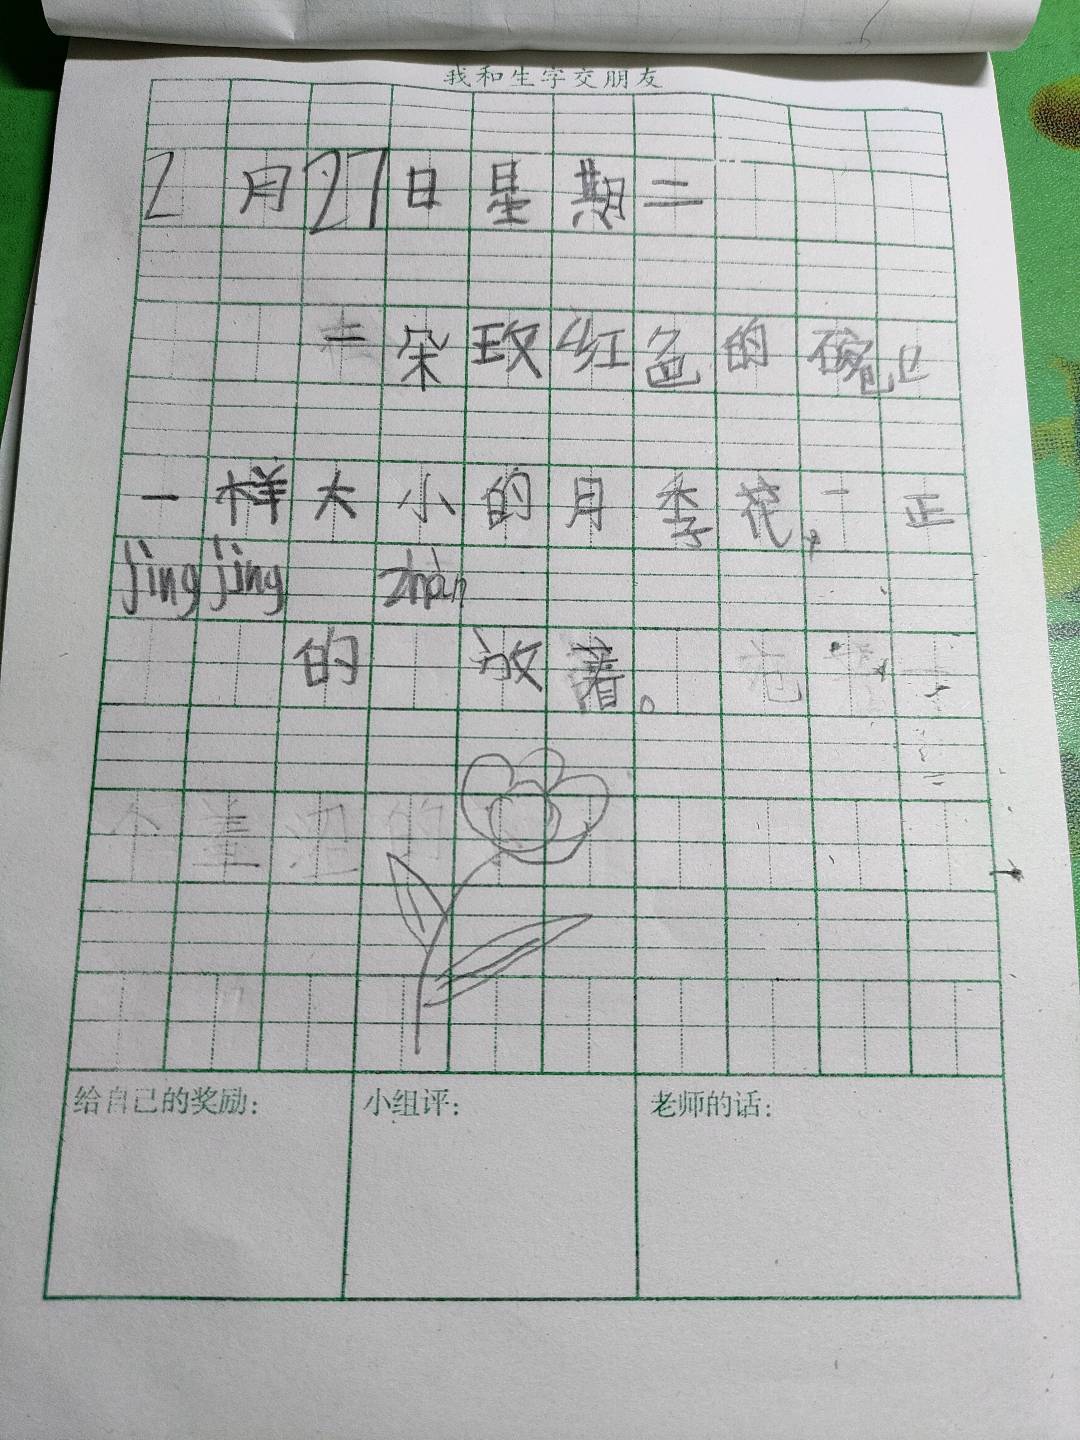 我和生字交朋友
2月27日星期二
一朵玫红色的碗口
一样大小的月季花，正
jìng jìng zhàn
的 放着。
给自己的奖励：
小组评：
老师的话：